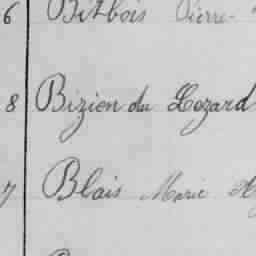 6 Bitbois Pierre
8 Bizien du Lozard
7 Blais Marie